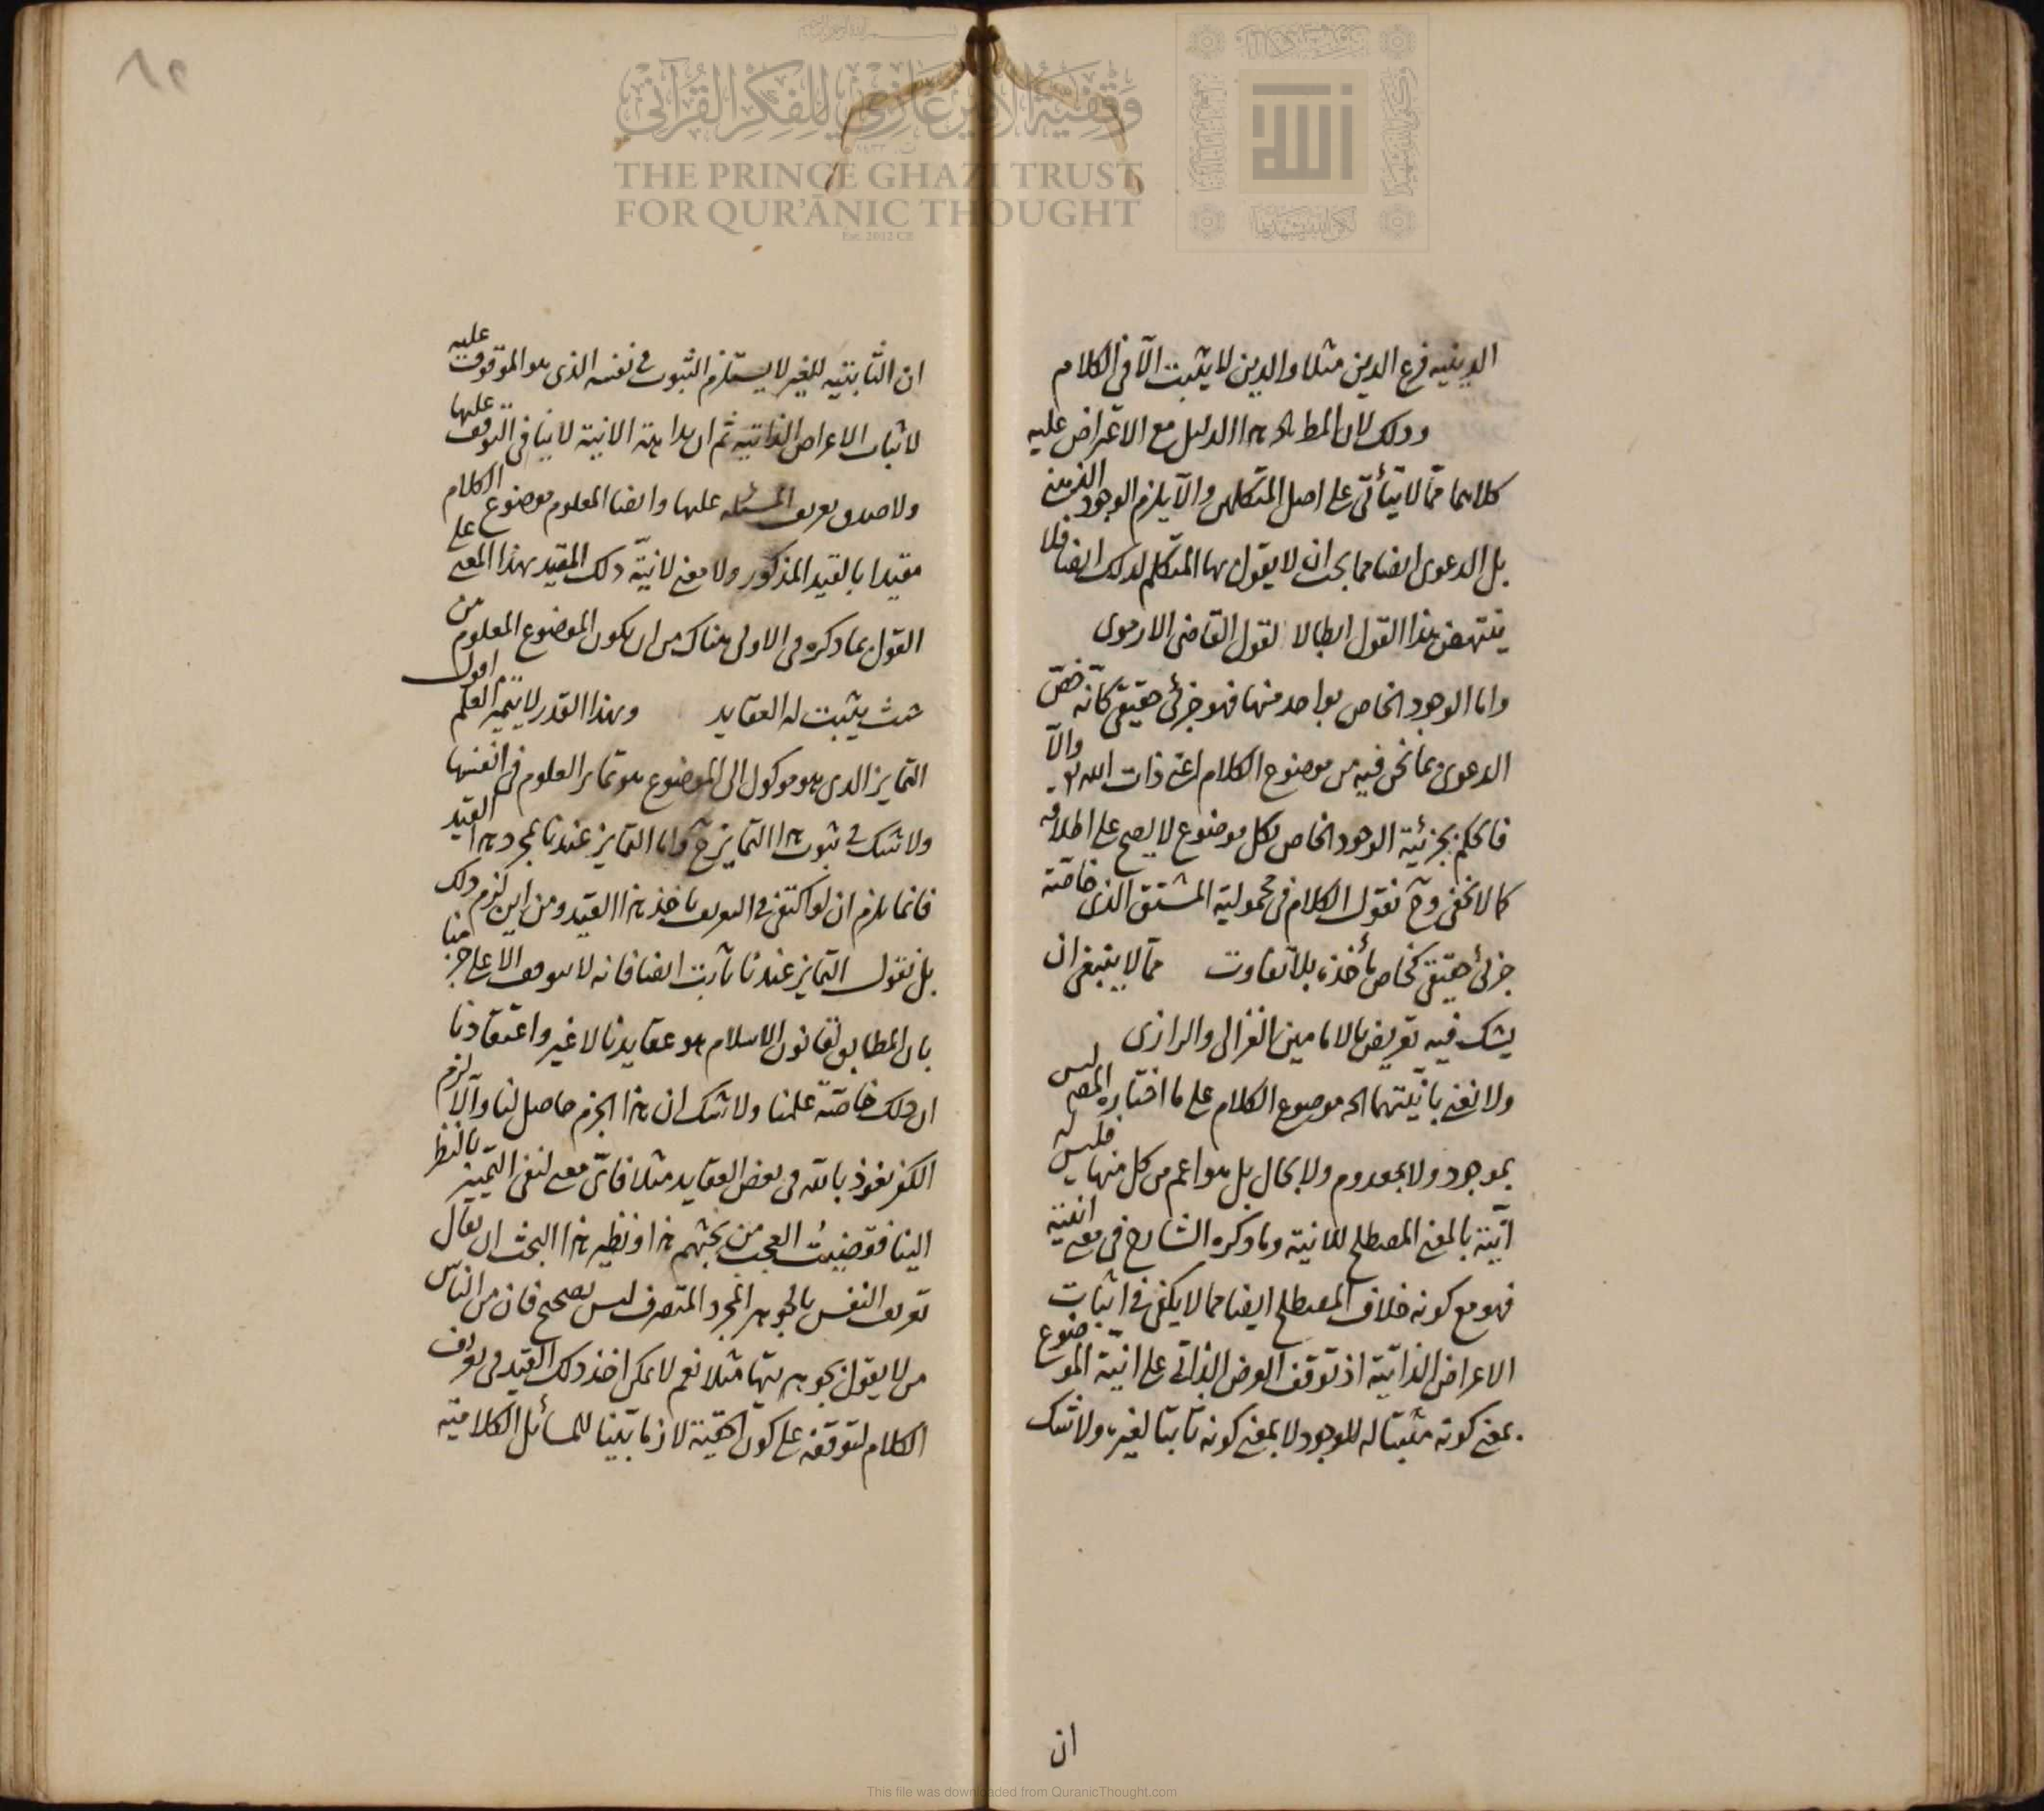 الدينيه فرع الدين مثلا والدين لا يثبت الا في الكلام
وذلك لان هذا الدليل مع الاعتراض عليه
كلاهما مما لا يتأتى على اصل المتكلمين والا يلزم الوجود الذهني
بل الدعوى ايضا مما يجب ان لا يقول بها المتكلم لذلك ايضا فلا
ينتهض هذا القول ابطالا لقول القاضي الارموي
واما الوجود الخاص بواحد منها فهو جزئي حقيقي كأنه خص
الدعوى بما نحن فيه من موضوع الكلام اعني ذات الله تع والا
فالحكم بجزئية الوجود الخاص لكل موضوع لا يصح على اطلاقه
كما لا يخفى وح نقول الكلام في محمولية المشتق الذي خاصته
جزئي حقيقي كخاص مأخذه بلا تفاوت مما لا ينبغي ان
يشك فيه تعريض بالامامين الغزالي والرازي
ولا نعني بانيتهما اله موضوع الكلام على ما اختاره المص ليس
بموجود ولا بمعدوم ولا بحال بل هو اعم من كل منها فليس له
انية بالمعنى المصطلح للانية وما ذكره الشارح في معنى انيته
فهو مع كونه خلاف المصطلح ايضا مما لا يكفي في اثبات
الاعراض الذاتية اذ توقف العرض الذاتي على انية الموضوع
بمعنى كونه مثبتا له للوجود لا بمعنى كونه ثابتا لغيره ولا شك
ان
٨٢
ان الثابتية للغير لا يستلزم الثبوت في نفسه الذي هو الموقوف عليه
لاثبات الاعراض الذاتية ثم ان بداهة الانية لا ينافي التوقف عليها
ولا صدق تعريف المسئلة عليها وايضا المعلوم موضوع الكلام
مقيدا بالقيد المذكور ولا معنى لانية ذلك المقيد بهذا المعنى على
القول بما ذكره في الاولى هناك من ان يكون الموضوع المعلوم من
حيث يثبت له العقايد وبهذا القدر لا يتميز العلم اقول
التمايز الذي هو موكول الى الموضوع هو تمايز العلوم في انفسها
ولا شك في ثبوت هذا التمايز ح واما التمايز عندنا بمجرد هذا القيد
فانما يلزم ان لو اكتفى في التعريف باخذ هذا القيد ومن اين لزم ذلك
بل نقول التمايز عندنا ثابت ايضا فانه لا يتوقف الا على جزمنا
بان المطابق لقانون الاسلام هو عقايدنا لا غير واعتقادنا
ان ذلك خاصة علمنا ولا شك ان هذا الجزم حاصل لنا والا لزم
الكفر نعوذ بالله في بعض العقايد مثلا فاي معنى لنفي التمييز بالنظر
الينا فقضيت العجب من بحثهم هذا ونظير هذا البحث ان يقال
تعريف النفس بالجوهر المجرد المتصرف ليس بصحيح فان من الناس
من لا يقول بجوهريتها مثلا نعم لا يمكن اخذ ذلك القيد في تعريف
الكلام لتوقفه على كون الحقية لازما بينا للمسائل الكلامية
وقفية الأمير غازي للفكر القرآني
THE PRINCE GHAZI TRUST
FOR QUR'ĀNIC THOUGHT
Est. 2012 CE
الله
This file was downloaded from QuranicThought.com